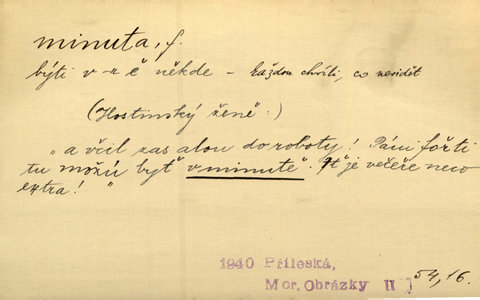 minuta, f.
býti v -u ě někde – každou chvíli, co nevidět
(Hostinský ženě:)
„a včil zas alou do roboty! Páni fořti
tu možú byť v minutě. Ať je večeře neco
extra!"
1940 Příleská,
Mor. Obrázky II] 54,16.